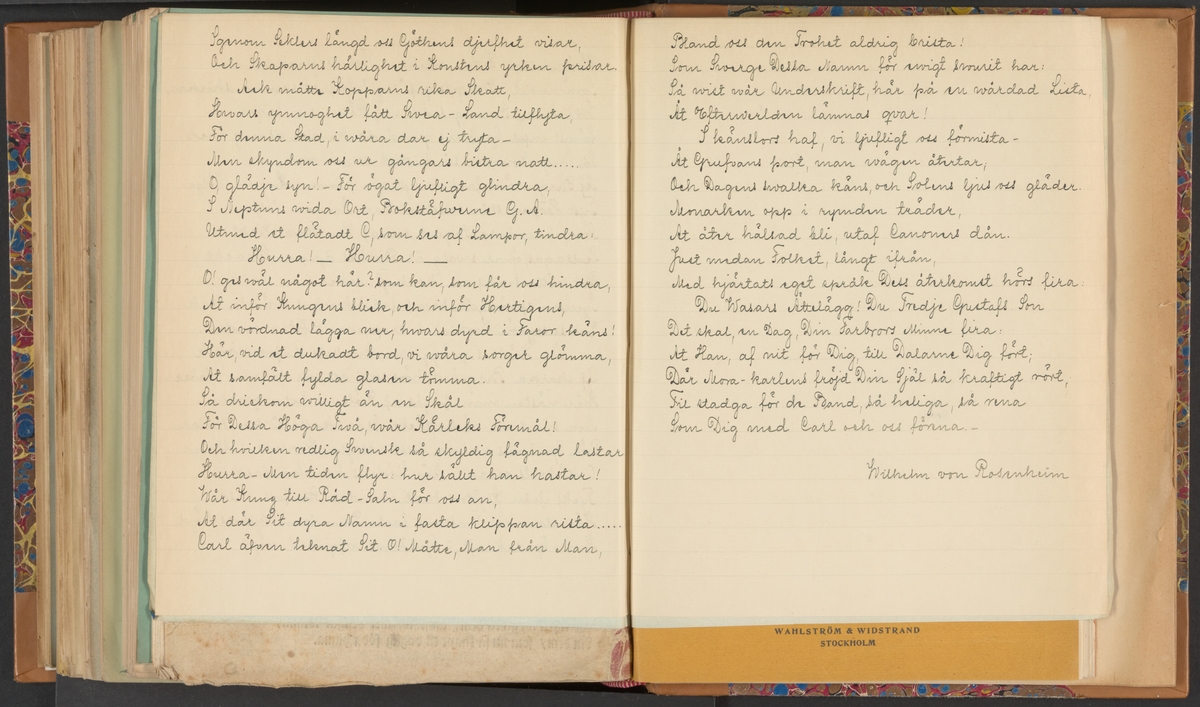 Igenom Seklers längd oss Göthens djerfhet visar,
Och Skaparns härlighet i Konstens yrken prisar.
Ack måtte Kopparns rika Skatt,
Hwars ymnoghet fått Swea-Land tillflyta,
För denna Stad, i wåra dar ej tryta—
Men skyndom oss ur gångars bistra natt.....
O, glädje syn!- För ögat ljufligt glindra,
I Neptuns wida Ort, Bokstäfwerne G. A.
Utmed et flätadt C, som ses af Lampor, tindra:
Hurra! — Hurra! —
O! ges wäl något här? som kan, som får oss hindra,
At inför Kungens blick, och inför Hertigens,
Den vördnad lägga ner, hwars dyrd i Faror käns!
Här, vid et dukadt bord, vi wåra sorger glömma,
At samfält fylda glasen tömma.
Så drickom willigt än en Skål
För Dessa Höga Twå, wår Kärleks Föremål!
Och hvilken redlig Swensk så skyldig fägnad lastar
Hurra- Men tiden flyr: hur sält han hastar!
Wår Kung till Råd-Saln för oss an,
At där Sit dyra Namn i fasta klippan rista.....
Carl äfven teknat Sit O! Måtte, Man från Man,
Bland oss den Trohet aldrig brista!
Som Swerge Dessa Namn för ewigt swurit har:
Så wist wår Underskrift, här på en wårdad Lista,
Åt Efterwerlden lämnas qvar!
I känslors haf, vi ljufligt oss förmista-
Åt Grufvans port, man wägen återtar,
Och Dagens swalka käns, och Solens ljus oss gläder.
Monarken opp i rymden träder,
At åter hälsad bli, utaf Canoners dån.
Just medan Folket, långt ifrån,
Med hjärtats eget språk Dess återkomst hörs fira:
Du Wasars Ättelägg! Du Tredje Gustafs Son
Det skal, en Dag, Din Farbrors Minne fira:
At Han, af nit för Dig, till Dalarne Dig fört;
Där Mora-karlens fröjd Din Själ så kraftigt rört,
Til stadga för de Band, så heliga, så rena
Som Dig med Carl och oss förena.-
Wilhelm von Rosenheim
WAHLSTRÖM & WIDSTRAND
STOCKHOLM